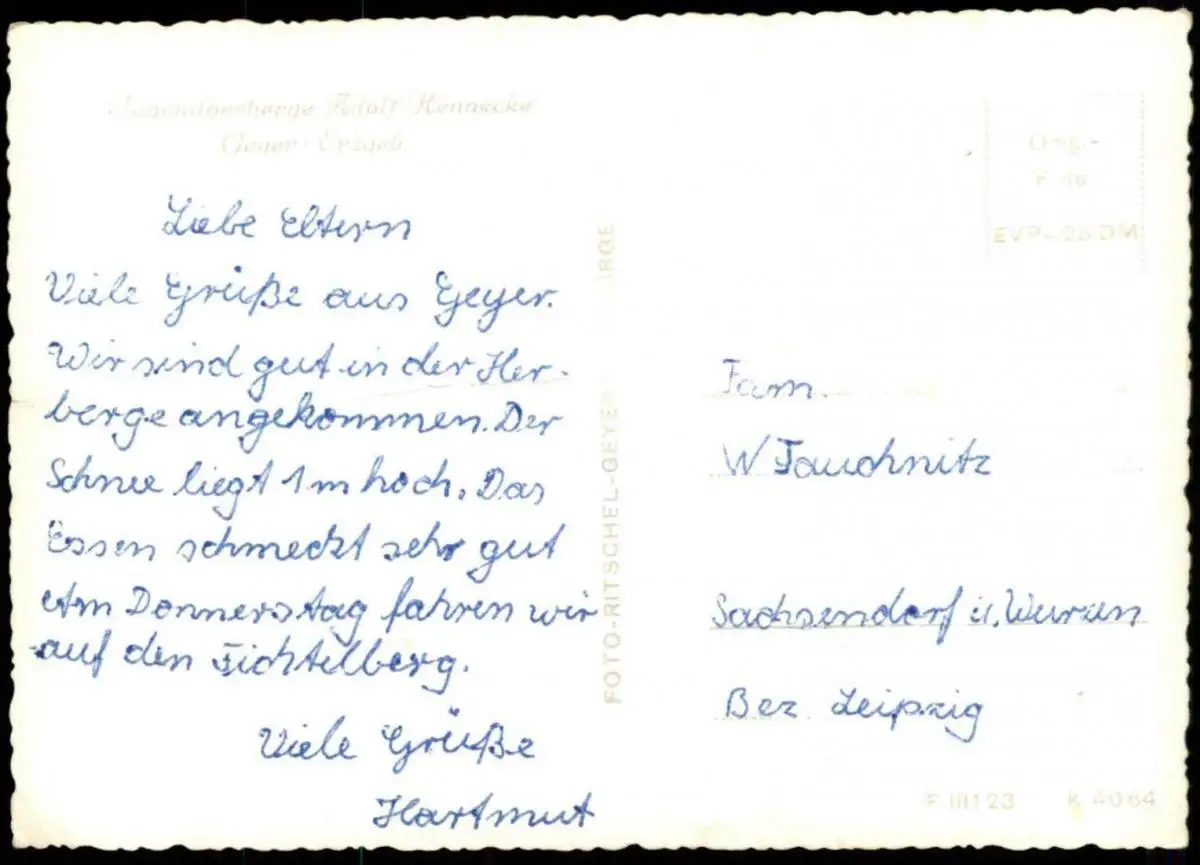 Jugendherberge Adolf Hennecke
Geyer Erzgeb.
Liebe Eltern
Viele Grüße aus Geyer.
Wir sind gut in der Her-
berge angekommen. Der
Schnee liegt 1m hoch. Das
Essen schmeckt sehr gut
Am Donnerstag fahren wir
auf den Fichtelberg.
Viele Grüße
Hartmut
FOTO-RITSCHEL-GEYER
EVP -,25 DM
Fam.
W Tauchnitz
Sachsendorf ü. Wurzen
Bez Leipzig
F III 1 23 K 4064